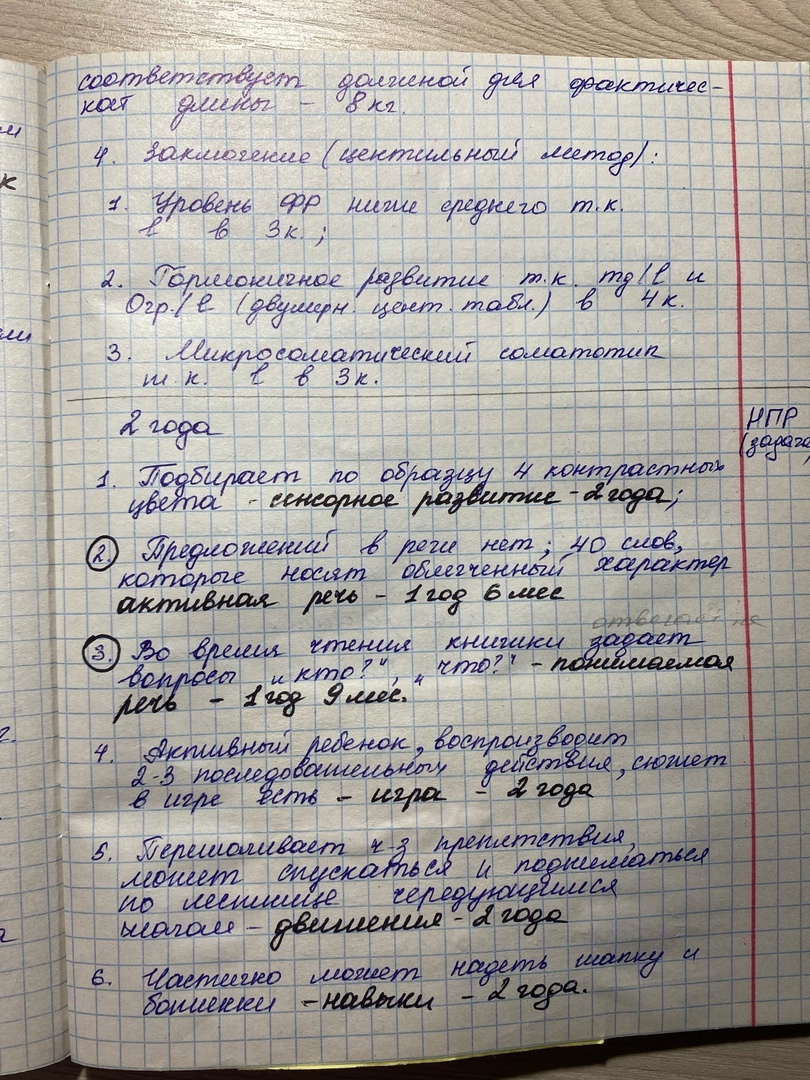 соответствует должной для фактичес-
кой длины - 8 кг.
4. Заключение (центильный метод):
1. Уровень ФР ниже среднего т.к.
l в 3к.;
2. Гармоничное развитие т.к. mg/l и
Огр./l (двумерн. цент. табл.) в 4к.
3. Микросоматический соматотип
т.к. l в 3к.
2 года
НПР
(задача
1. Подбирает по образцу 4 контрастных
цвета - сенсорное развитие - 2 года;
2. Предложений в речи нет; 40 слов,
которые носят облегченный характер
активная речь - 1 год 6 мес
отвечает на
3. Во время чтения книжки задает
вопросы „кто?", „что?" - понимаемая
речь - 1 год 9 мес.
4. Активный ребенок, воспроизводит
2-3 последовательных действия, сюжет
в игре есть - игра - 2 года
5. Перешагивает ч-з препятствия,
может спускаться и подниматься
по лестнице чередующимся
шагом - движения - 2 года
6. Частично может надеть шапку и
ботинки - навыки - 2 года.